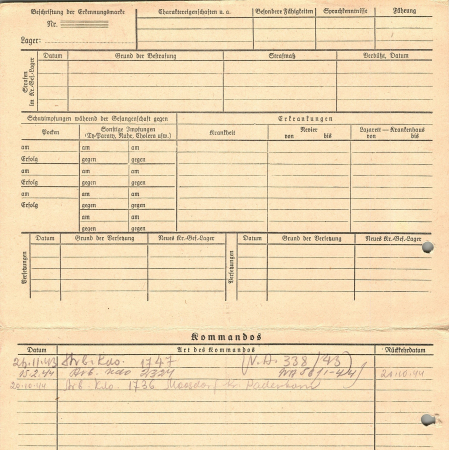 Beschriftung der Erkennungsmarke
Nr.
Lager:
Charaktereigenschaften u. a.
Besondere Fähigkeiten
Sprachkenntnisse
Führung
Strafen im Kr.-Gef.-Lager
Datum
Grund der Bestrafung
Strafmaß
Verbüßt, Datum
Schutzimpfungen während der Gefangenschaft gegen
Erkrankungen
Pocken
Sonstige Impfungen
(Ty-Paraty, Ruhr, Cholera usw.)
Krankheit
Revier
von bis
Lazarett — Krankenhaus
von bis
am am am
Erfolg gegen gegen
am am am
Erfolg gegen gegen
am am am
Erfolg gegen gegen
am am
gegen gegen
Versetzungen
Datum
Grund der Versetzung
Neues Kr.-Gef.-Lager
Versetzungen
Datum
Grund der Versetzung
Neues Kr.-Gef.-Lager
Kommandos
Datum Art des Kommandos Rückkehrdatum
Arb. Kdo. 1747 (N.A. 338/43)
15.2.44 Arb. Kdo 20.10.44
20.10.44 Arb. Kdo. 1736 Kr. Paderborn